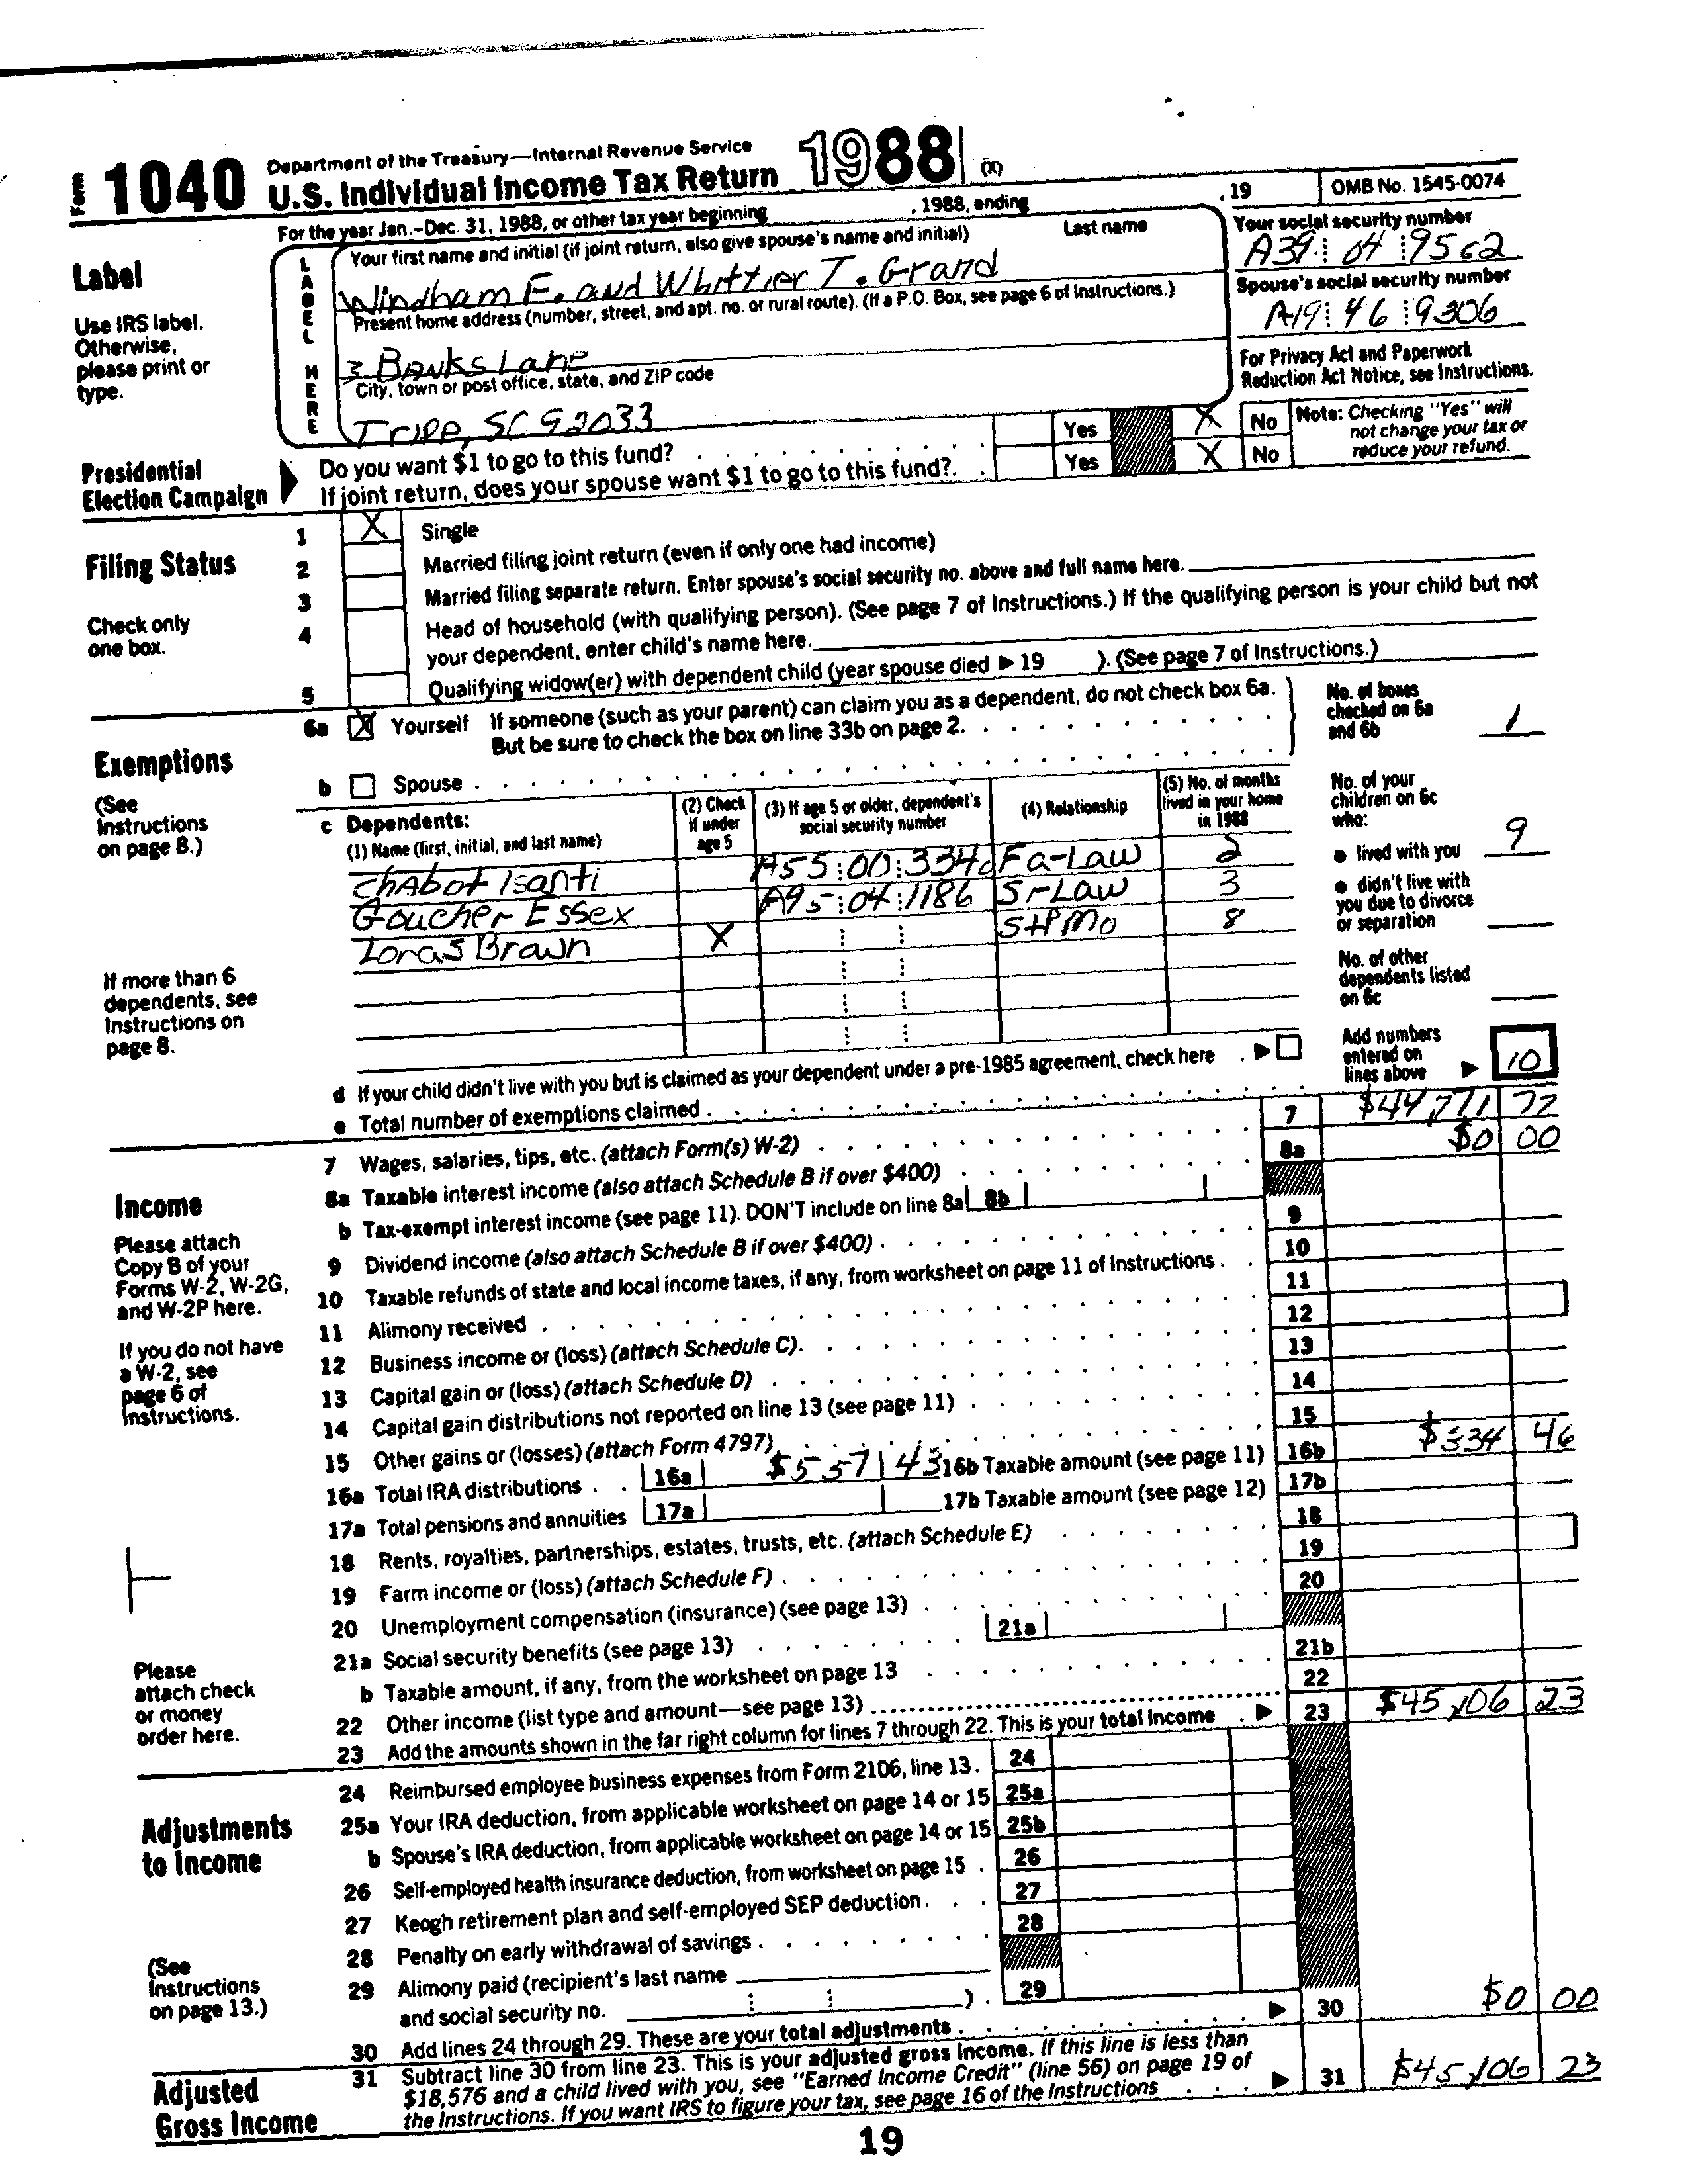 Form 1040 Department of the Treasury—Internal Revenue Service
U.S. Individual Income Tax Return 1988 (X)
For the year Jan.–Dec. 31, 1988, or other tax year beginning , 1988, ending , 19 OMB No. 1545-0074
Label
Use IRS label.
Otherwise,
please print or
type.
LABEL HERE
Your first name and initial (if joint return, also give spouse's name and initial) Last name
Windham F. and Whittier T. Grand
Present home address (number, street, and apt. no. or rural route). (If a P.O. Box, see page 6 of Instructions.)
3 Banks Lane
City, town or post office, state, and ZIP code
Tripp, SC 92033
Your social security number
A39 04 9562
Spouse's social security number
A19 46 9306
For Privacy Act and Paperwork
Reduction Act Notice, see Instructions.
Presidential
Election Campaign
Do you want $1 to go to this fund? Yes X No
If joint return, does your spouse want $1 to go to this fund? Yes X No
Note: Checking "Yes" will
not change your tax or
reduce your refund.
Filing Status
Check only
one box.
1 X Single
2 Married filing joint return (even if only one had income)
3 Married filing separate return. Enter spouse's social security no. above and full name here.
4 Head of household (with qualifying person). (See page 7 of Instructions.) If the qualifying person is your child but not
your dependent, enter child's name here.
5 Qualifying widow(er) with dependent child (year spouse died ▶ 19 ). (See page 7 of Instructions.)
Exemptions
(See
Instructions
on page 8.)
If more than 6
dependents, see
Instructions on
page 8.
6a X Yourself If someone (such as your parent) can claim you as a dependent, do not check box 6a.
But be sure to check the box on line 33b on page 2.
b Spouse
No. of boxes
checked on 6a
and 6b 1
c Dependents:
(1) Name (first, initial, and last name)
(2) Check
if under
age 5
(3) If age 5 or older, dependent's
social security number
(4) Relationship
(5) No. of months
lived in your home
in 1988
Chabot Isanti A55 00 3340 Fa-Law 2
Goucher Essex A95 04 1186 Sr Law 3
Loras Brawn X StPMo 8
No. of your
children on 6c
who:
● lived with you 9
● didn't live with
you due to divorce
or separation
No. of other
dependents listed
on 6c
Add numbers
entered on
lines above ▶ 10
d If your child didn't live with you but is claimed as your dependent under a pre-1985 agreement, check here ▶
e Total number of exemptions claimed
Income
Please attach
Copy B of your
Forms W-2, W-2G,
and W-2P here.
If you do not have
a W-2, see
page 6 of
Instructions.
Please
attach check
or money
order here.
7 Wages, salaries, tips, etc. (attach Form(s) W-2) 7 $44,771 77
8a Taxable interest income (also attach Schedule B if over $400) 8a $0 00
b Tax-exempt interest income (see page 11). DON'T include on line 8a 8b
9 Dividend income (also attach Schedule B if over $400) 9
10 Taxable refunds of state and local income taxes, if any, from worksheet on page 11 of Instructions 10
11 Alimony received 11
12 Business income or (loss) (attach Schedule C) 12
13 Capital gain or (loss) (attach Schedule D) 13
14 Capital gain distributions not reported on line 13 (see page 11) 14
15 Other gains or (losses) (attach Form 4797) 15
16a Total IRA distributions 16a $557 43 16b Taxable amount (see page 11) 16b $334 46
17a Total pensions and annuities 17a 17b Taxable amount (see page 12) 17b
18 Rents, royalties, partnerships, estates, trusts, etc. (attach Schedule E) 18
19 Farm income or (loss) (attach Schedule F) 19
20 Unemployment compensation (insurance) (see page 13) 20
21a Social security benefits (see page 13) 21a
b Taxable amount, if any, from the worksheet on page 13 21b
22 Other income (list type and amount—see page 13) 22
23 Add the amounts shown in the far right column for lines 7 through 22. This is your total income ▶ 23 $45,106 23
Adjustments
to Income
(See
Instructions
on page 13.)
24 Reimbursed employee business expenses from Form 2106, line 13. 24
25a Your IRA deduction, from applicable worksheet on page 14 or 15 25a
b Spouse's IRA deduction, from applicable worksheet on page 14 or 15 25b
26 Self-employed health insurance deduction, from worksheet on page 15 26
27 Keogh retirement plan and self-employed SEP deduction 27
28 Penalty on early withdrawal of savings 28
29 Alimony paid (recipient's last name
and social security no. ). 29
30 Add lines 24 through 29. These are your total adjustments ▶ 30 $0 00
Adjusted
Gross Income
31 Subtract line 30 from line 23. This is your adjusted gross income. If this line is less than
$18,576 and a child lived with you, see "Earned Income Credit" (line 56) on page 19 of
the Instructions. If you want IRS to figure your tax, see page 16 of the Instructions ▶ 31 $45,106 23
19